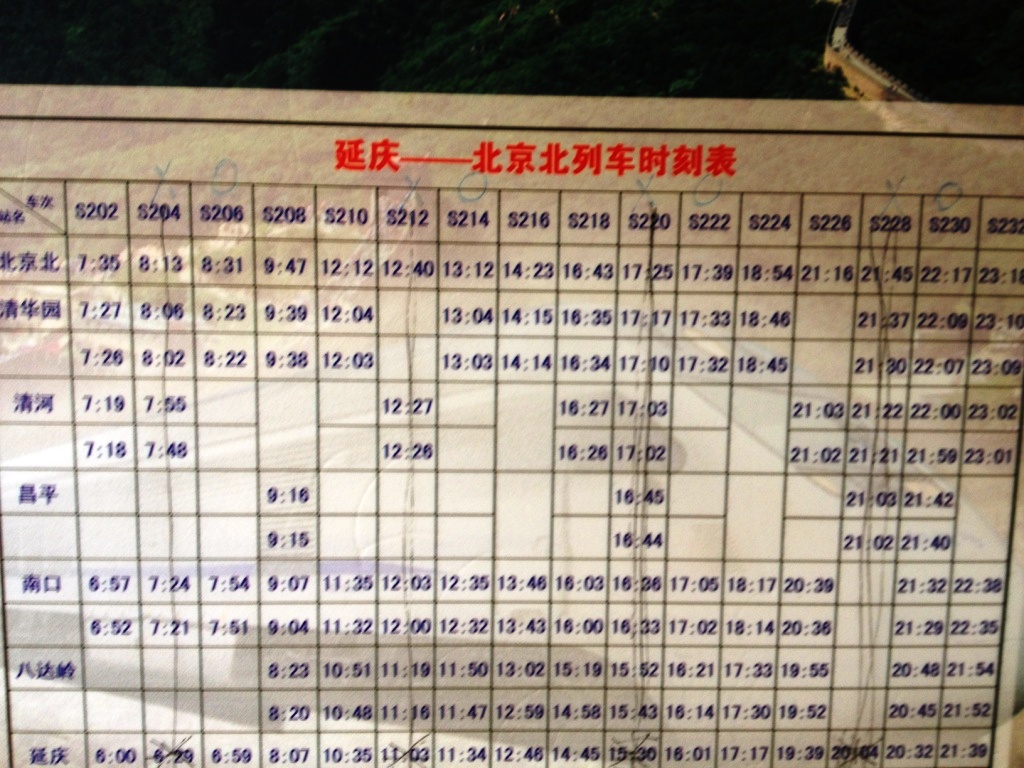 延庆——北京北列车时刻表
车次 S202 S204 S206 S208 S210 S212 S214 S216 S218 S220 S222 S224 S226 S228 S230 S232
站名
北京北 7:35 8:13 8:31 9:47 12:12 12:40 13:12 14:23 16:43 17:25 17:39 18:54 21:16 21:45 22:17 23:18
清华园 7:27 8:06 8:23 9:39 12:04 13:04 14:15 16:35 17:17 17:33 18:46 21:37 22:09 23:10
7:26 8:02 8:22 9:38 12:03 13:03 14:14 16:34 17:10 17:32 18:45 21:30 22:07 23:09
清河 7:19 7:55 12:27 16:27 17:03 21:03 21:22 22:00 23:02
7:18 7:48 12:26 16:26 17:02 21:02 21:21 21:59 23:01
昌平 9:16 16:45 21:03 21:42
9:15 16:44 21:02 21:40
南口 6:57 7:24 7:54 9:07 11:35 12:03 12:35 13:46 16:03 16:36 17:05 18:17 20:39 21:32 22:38
6:52 7:21 7:51 9:04 11:32 12:00 12:32 13:43 16:00 16:33 17:02 18:14 20:36 21:29 22:35
八达岭 8:23 10:51 11:19 11:50 13:02 15:19 15:52 16:21 17:33 19:55 20:48 21:54
8:20 10:48 11:16 11:47 12:59 14:58 15:43 16:14 17:30 19:52 20:45 21:52
延庆 6:00 6:29 6:59 8:07 10:35 11:03 11:34 12:46 14:45 15:30 16:01 17:17 19:39 20:04 20:32 21:39